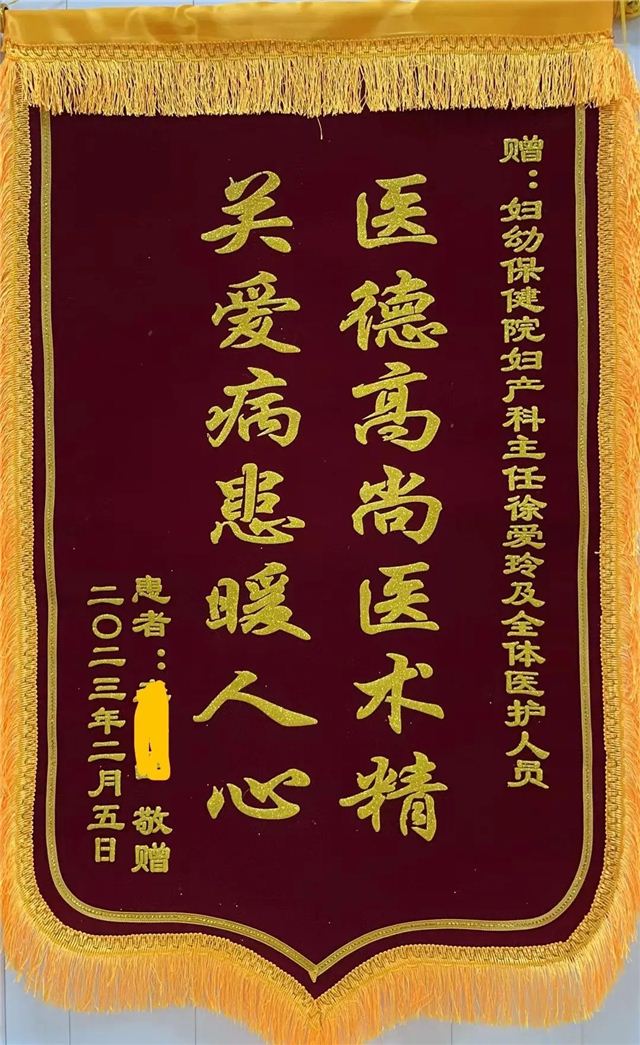 赠：妇幼保健院妇产科主任徐爱玲及全体医护人员
医德高尚医术精
关爱病患暖人心
患者： 敬赠
二〇二三年二月五日